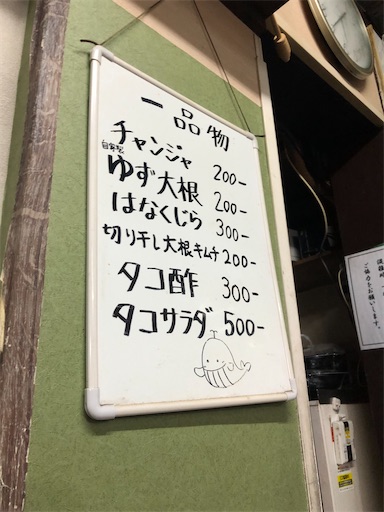 一品物
チャンジャ 200-
自家製 ゆず大根 200-
はなくじら 300-
切り干し大根キムチ 200-
タコ酢 300-
タコサラダ 500-
ご協力をお願いします。